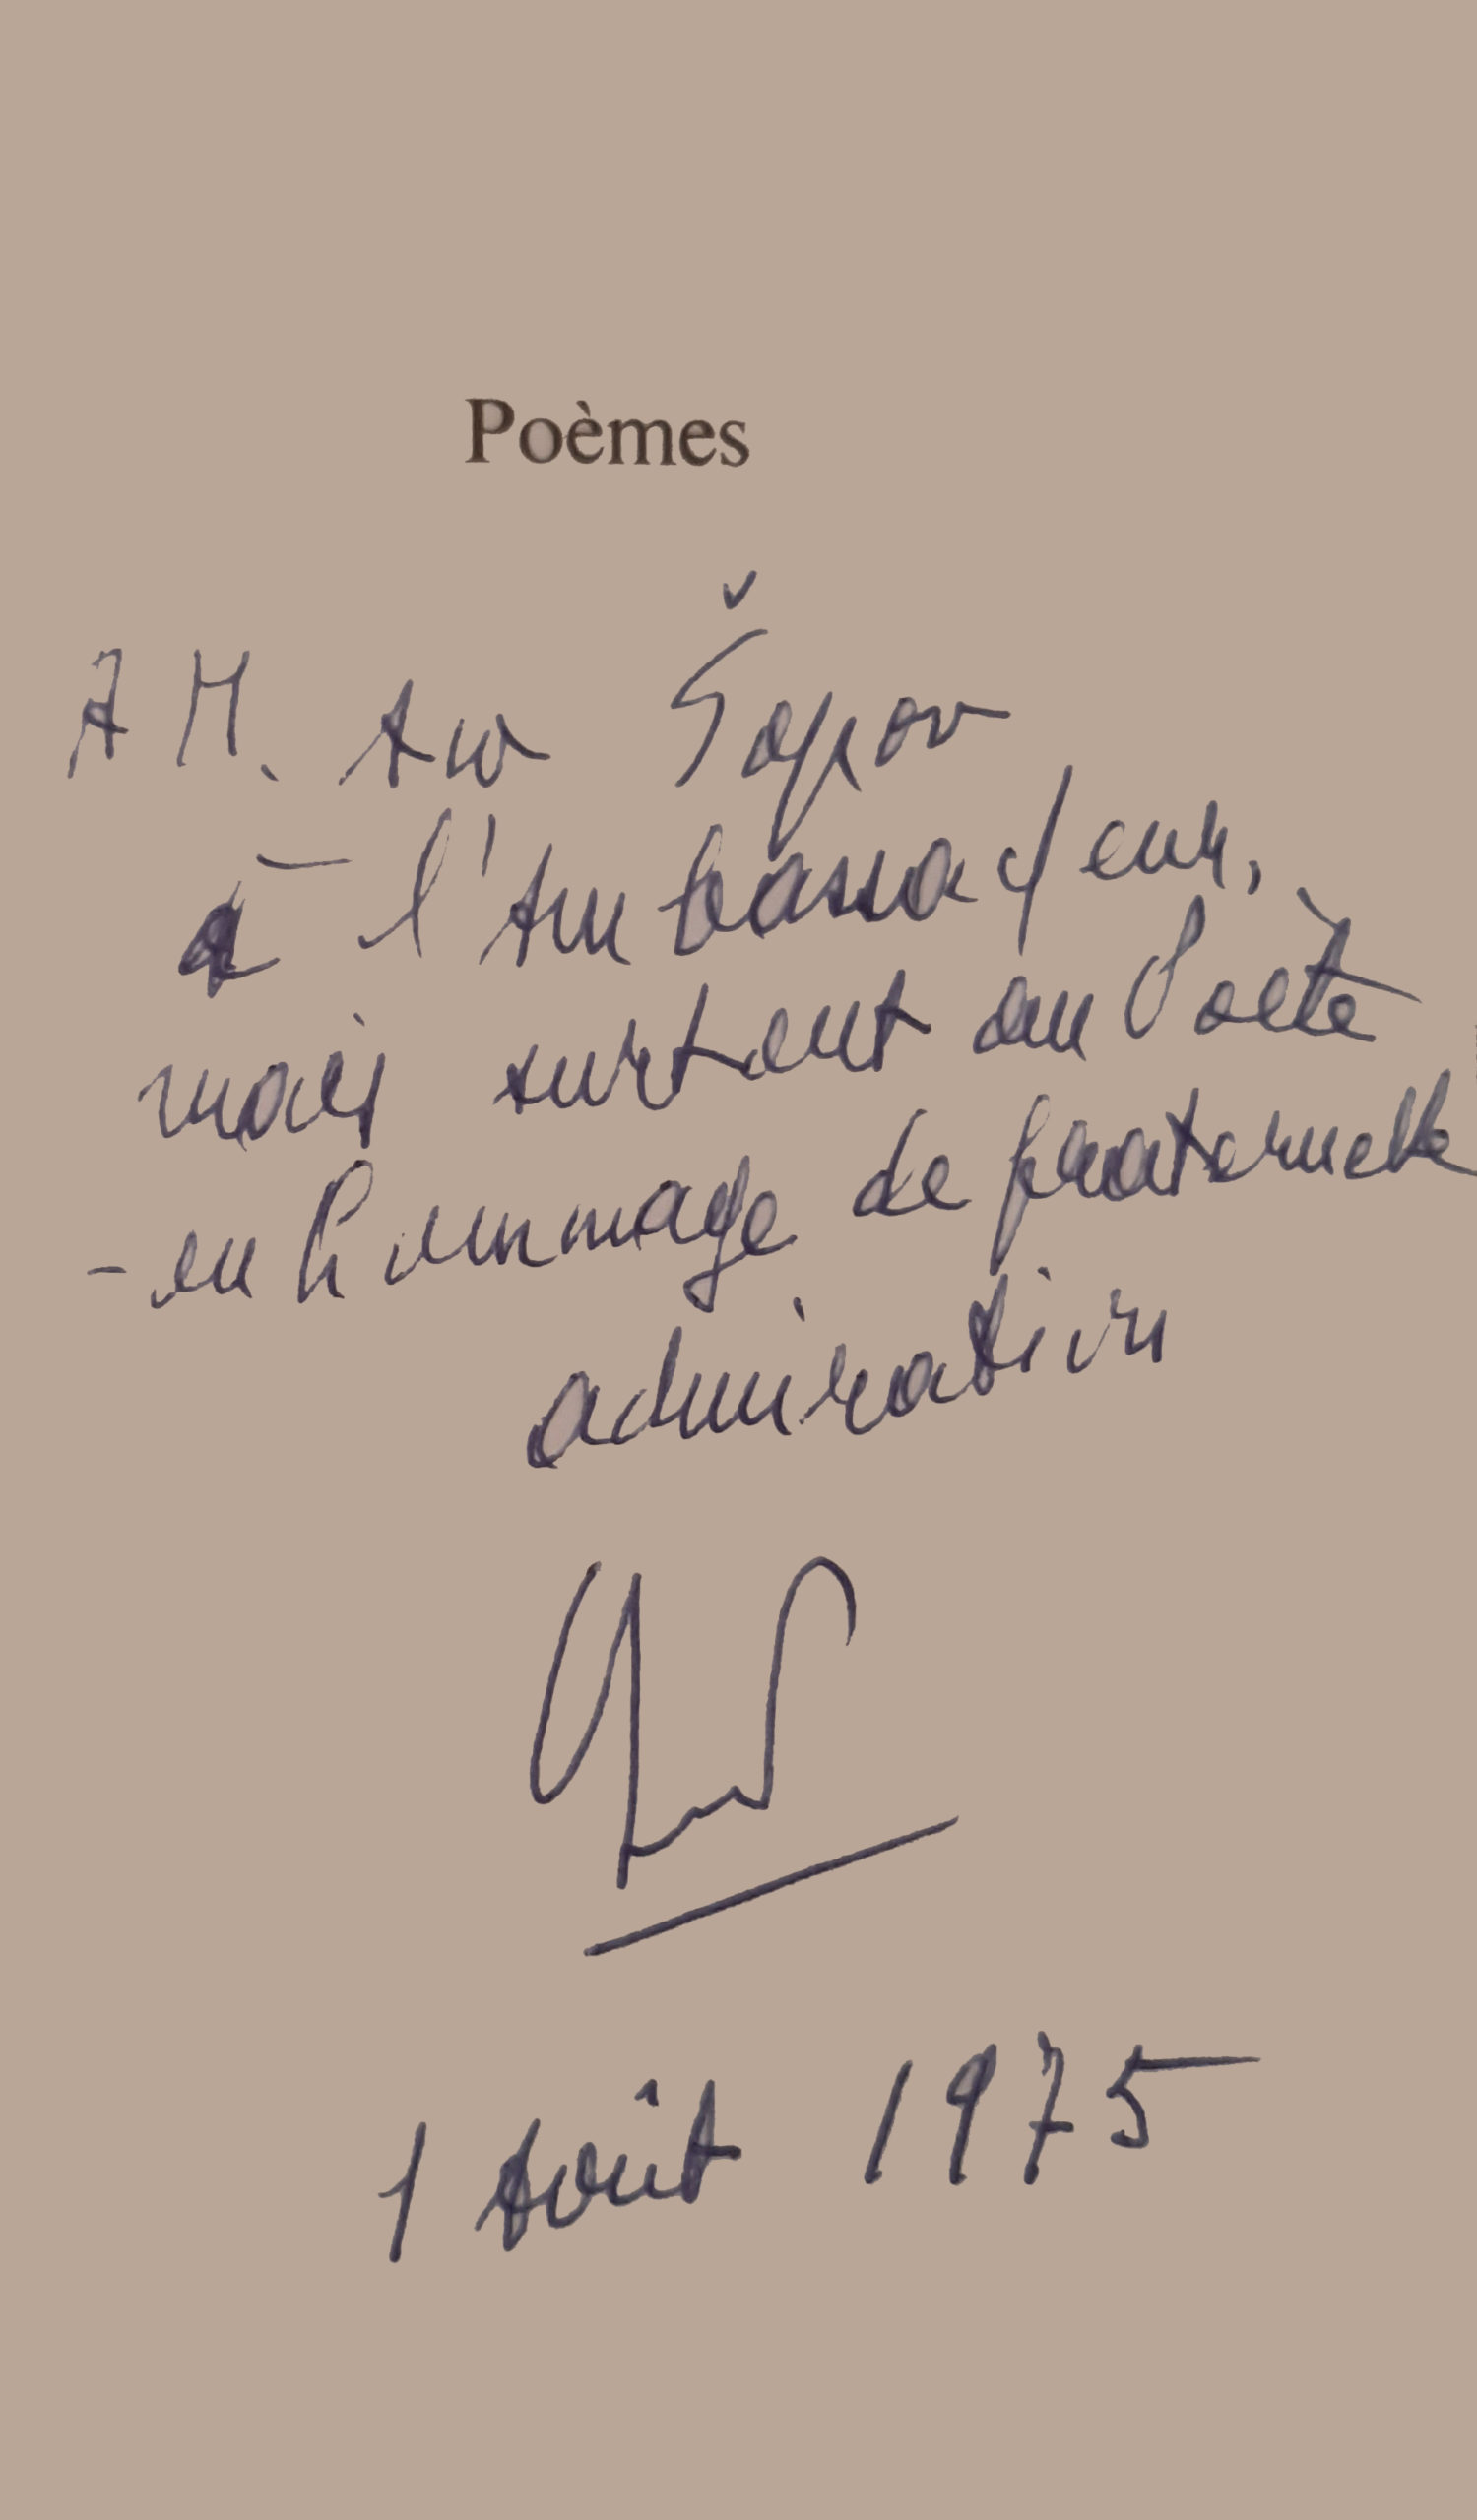 Poèmes
A M. Ante Šegvi
à l'Ambassadeur,
mais surtout au Poète
- en hommage de fraternelle
admiration
1 Août 1975